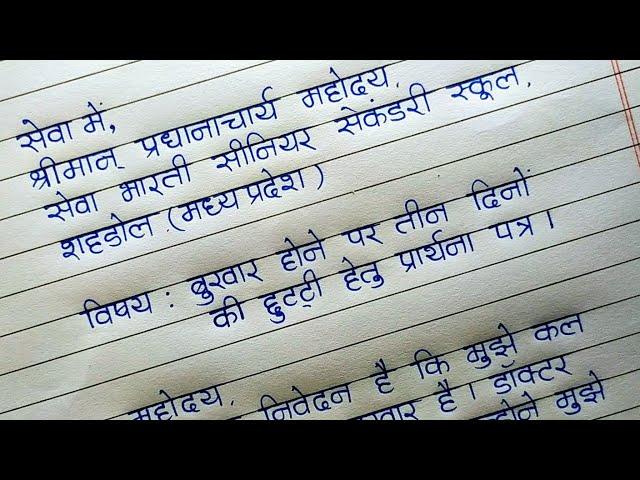 सेवा में,
श्रीमान् प्रधानाचार्य महोदय,
सेवा भारती सीनियर सेकंडरी स्कूल,
शहडोल (मध्य प्रदेश)
विषय : बुखार होने पर तीन दिनों
की छुटटी हेतु प्रार्थना पत्र ।
महोदय,
निवेदन है कि मुझे कल
है । डॉक्टर
मुझे